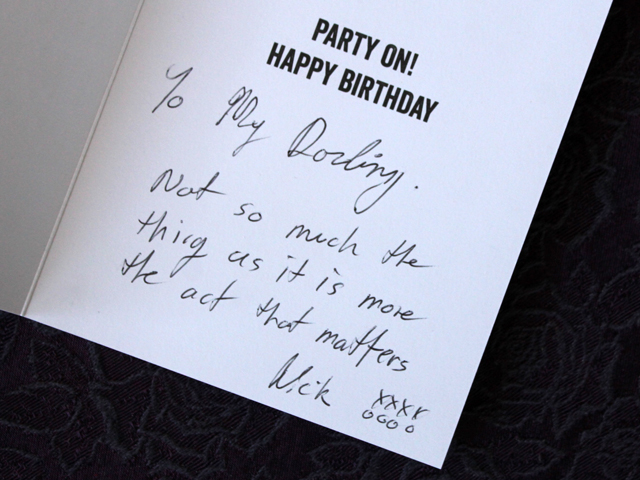 PARTY ON!
HAPPY BIRTHDAY
To My Darling.
Not so much the
thing as it is more
the act that matters
Nick xxxx
oooo